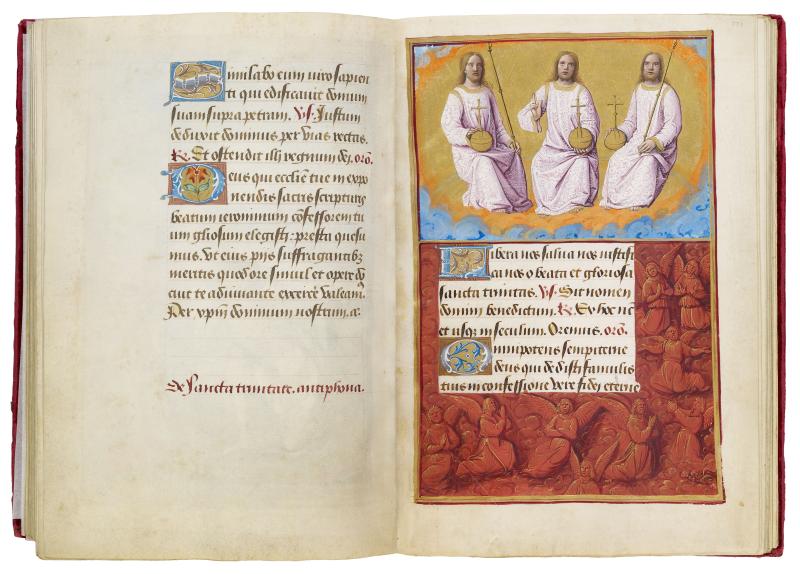 Similabo eum viro sapien
ti qui edificavit domum
suam supra petram. Vs. Justum
deduxit dominus per vias rectas.
R. Et ostendit illi regnum dei. orō.
Deus qui ecclie tue in expo
nendis sacris scripture
beatum ieronimum cōfessorem tu
um gliosum elegisti: presta quesu
mus. ut eius piis suffragantibꝫ
meritis quod ore simul et opere do
cuit te adiuvante exercere valeam9.
Per xp̄m dominum nostrum. a
De sancta trinitate. antiphona.
Libera nos salva nos iustifi
ca nos o beata et gloriosa
sancta trinitas. Vs. Sit nomen
domini benedictum. R. Ex hoc nc̄
et usqꝫ in seculum. Oremus. orō.
Omnipotens sempiterne
deus qui dedisti famulis
tuis in confessione vere fidei eterne